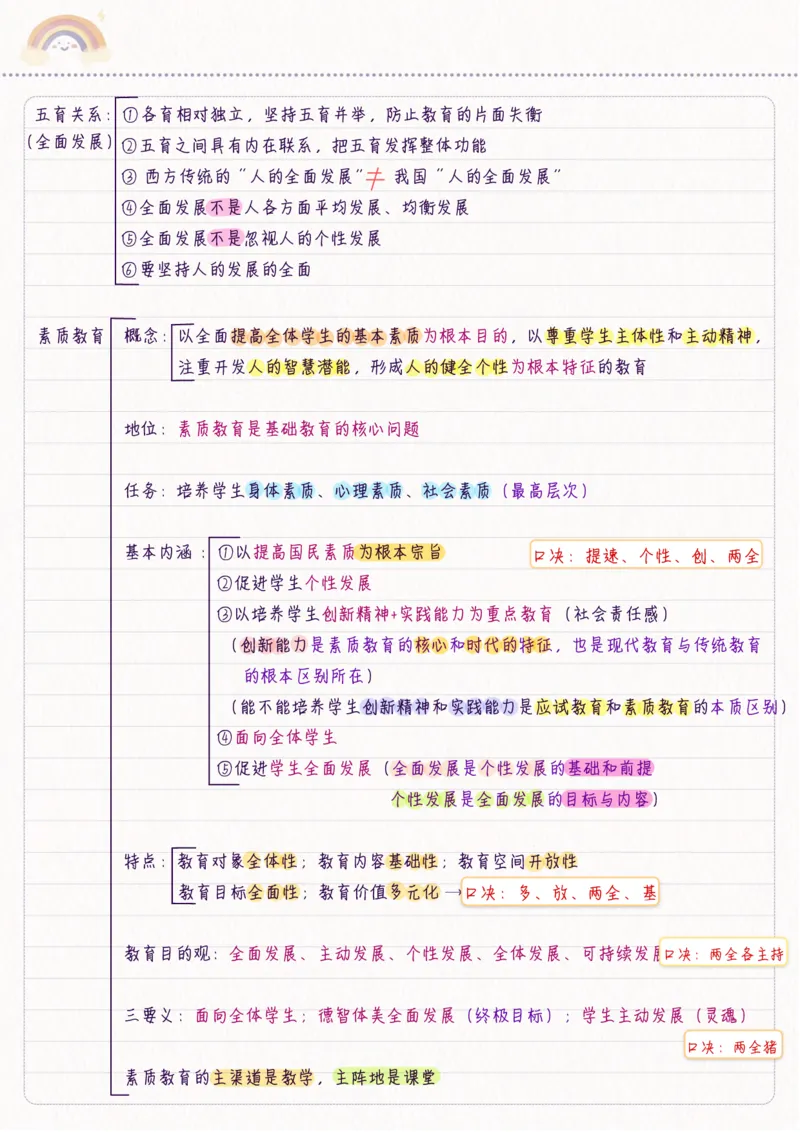 五育关系：①各育相对独立，坚持五育并举，防止教育的片面失衡
（全面发展）②五育之间具有内在联系，把五育发挥整体功能
③西方传统的“人的全面发展”≠ 我国“人的全面发展”
④全面发展不是人各方面平均发展、均衡发展
⑤全面发展不是忽视人的个性发展
⑥要坚持人的发展的全面
素质教育 概念：以全面提高全体学生的基本素质为根本目的，以尊重学生主体性和主动精神，
注重开发人的智慧潜能，形成人的健全个性为根本特征的教育
地位：素质教育是基础教育的核心问题
任务：培养学生身体素质、心理素质、社会素质（最高层次）
基本内涵：①以提高国民素质为根本宗旨 口决：提速、个性、创、两全
②促进学生个性发展
③以培养学生创新精神+实践能力为重点教育（社会责任感）
（创新能力是素质教育的核心和时代的特征，也是现代教育与传统教育
的根本区别所在）
（能不能培养学生创新精神和实践能力是应试教育和素质教育的本质区别）
④面向全体学生
⑤促进学生全面发展（全面发展是个性发展的基础和前提
个性发展是全面发展的目标与内容）
特点：教育对象全体性；教育内容基础性；教育空间开放性
教育目标全面性；教育价值多元化→口决：多、放、两全、基
教育目的观：全面发展、主动发展、个性发展、全体发展、可持续发展 口决：两全各主持
三要义：面向全体学生；德智体美全面发展（终极目标）；学生主动发展（灵魂）
口决：两全猪
素质教育的主渠道是教学，主阵地是课堂